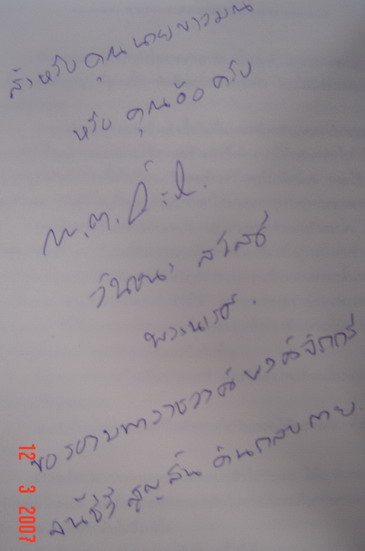 สำหรับ คุณนายขาวมณ
หรือ คุณอ๊อ ครับ
พ.ต.
วันชนะ สวัสดี
พระนเรศ.
ขอรอาบพาราชวาสพาสจักรี
จนชีวีสูญสิ้นดินกลบกาย.
12 3 2007